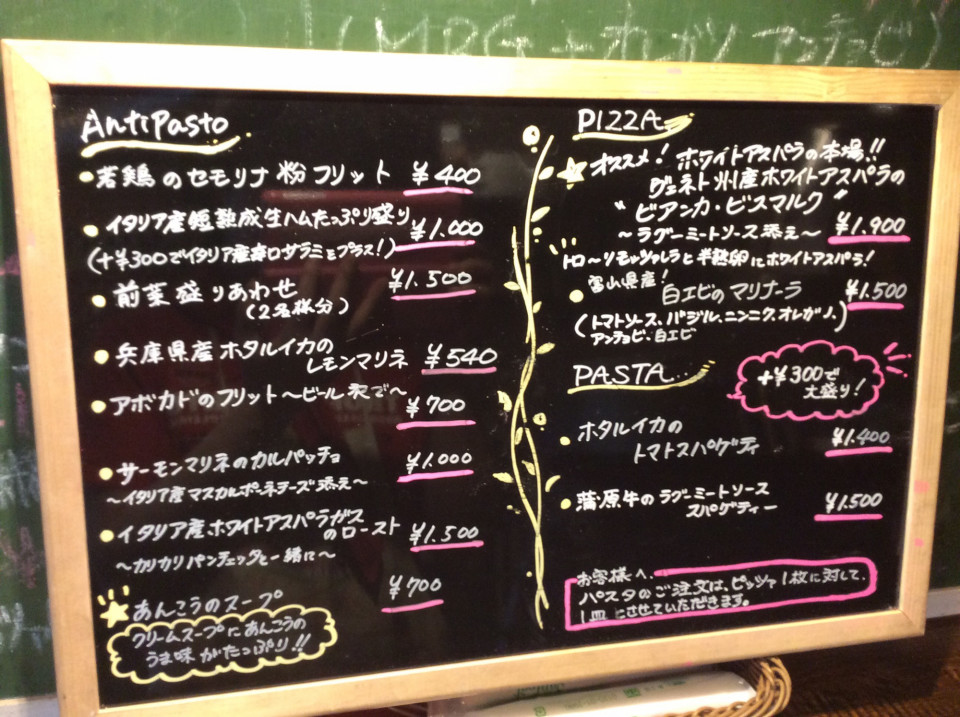 Antipasto
・若鶏のセモリナ粉フリット ¥400
・イタリア産短熟成生ハムたっぷり盛り ¥1.000
(+¥300でイタリア産辛口サラミをプラス!)
・前菜盛りあわせ ¥1.500
(2名様分)
・兵庫県産ホタルイカの
レモンマリネ ¥540
・アボカドのフリット〜ビール衣で〜 ¥700
・サーモンマリネのカルパッチョ ¥1.000
〜イタリア産マスカルポーネチーズ添え〜
・イタリア産ホワイトアスパラガス
のロースト ¥1.500
〜カリカリパンチェッタと一緒に〜
あんこうのスープ ¥700
クリームスープにあんこうの
うま味がたっぷり!!
PIZZA
オススメ! ホワイトアスパラの本場!!
ヴェネト州産ホワイトアスパラの
"ビアンカ・ビスマルク"
〜ラグーミートソース添え〜 ¥1.900
トロ〜リモッツァレラと半熟卵にホワイトアスパラ!
富山県産!
・白エビのマリナーラ ¥1.500
(トマトソース、バジル、ニンニク、オレガノ、)
アンチョビ、白エビ
PASTA
+¥300で
大盛り!
・ホタルイカの
トマトスパゲティ ¥1.400
・蒲原牛のラグーミートソース
スパゲティー ¥1.500
お客様へ、
パスタのご注文は、ピッツァ1枚に対して、
1皿にさせていただきます。